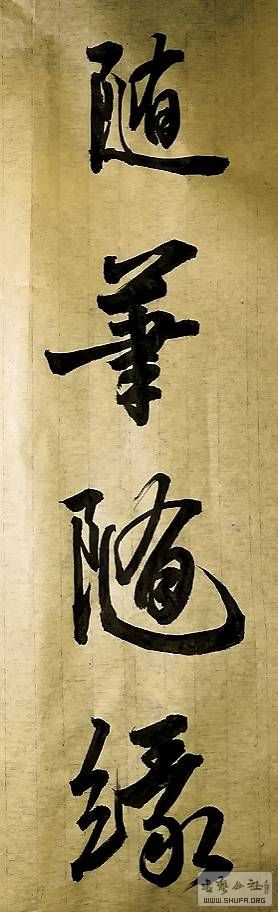 随筆随緣
书藝公社
WWW.SHUFA.ORG